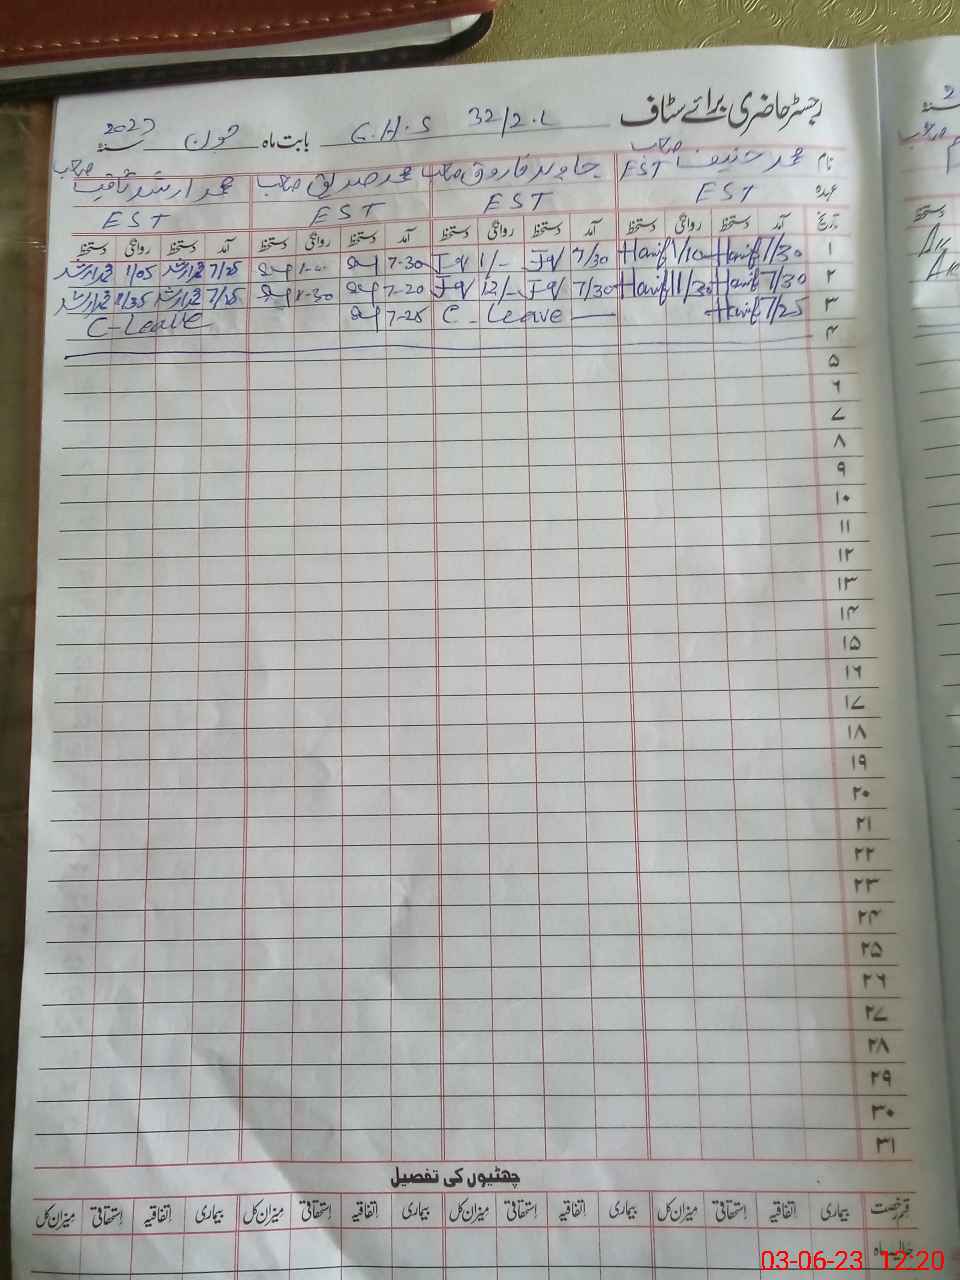 رجسٹر حاضری برائے سٹاف G.H.S 32/2.L بابت ماہ جون 2023 سنہ
نام محمد حنیف صاحب EST جاوید فاروق صاحب محمد صدیق صاحب محمد ارشد ثاقب صاحب
عہدہ EST EST EST EST
تاریخ آمد دستخط روانگی دستخط آمد دستخط روانگی دستخط آمد دستخط روانگی دستخط آمد دستخط روانگی دستخط
۱ 7/30 Hanif 1/10 Hanif 7/30 1/- 7-30 7/25 محمد ارشد 1/05 محمد ارشد
۲ 7/30 Hanif 11/30 Hanif 7/30 12/- 7-20 7/25 محمد ارشد محمد ارشد
۳ 7/25 Hanif C - Leave 7-25 C-Leave
۴
۵
۶
۷
۸
۹
۱۰
۱۱
۱۲
۱۳
۱۴
۱۵
۱۶
۱۷
۱۸
۱۹
۲۰
۲۱
۲۲
۲۳
۲۴
۲۵
۲۶
۲۷
۲۸
۲۹
۳۰
۳۱
چھٹیوں کی تفصیل
قسم رخصت بیماری اتفاقیہ استحقاقی میزان کل بیماری اتفاقیہ استحقاقی میزان کل بیماری اتفاقیہ استحقاقی میزان کل بیماری اتفاقیہ استحقاقی میزان کل
03-06-23 12:20